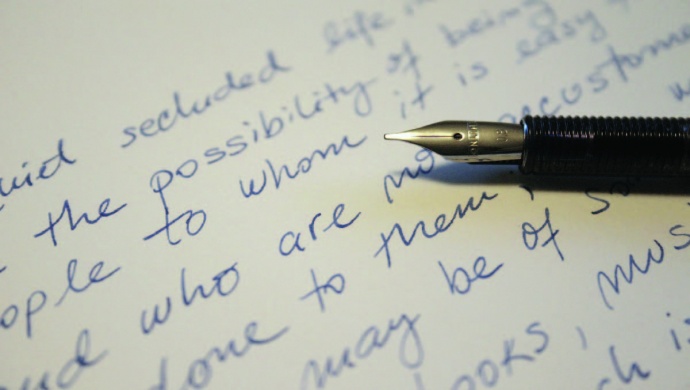 uiet secluded life in
the possibility of being
ople to whom it is easy
nd who are no accustome
done to them;
may be of so
ooks, mus
ch i